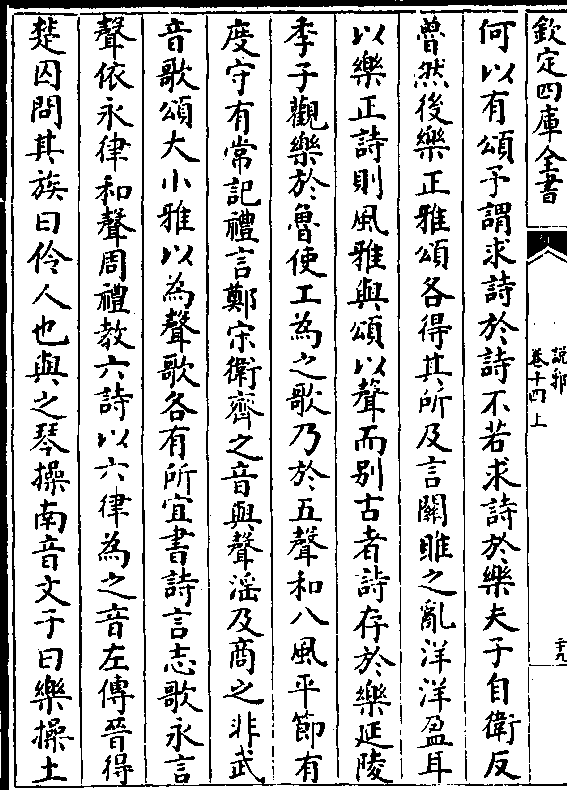 欽定四庫全書
說郛
卷十四上
二十九
何以有頌予謂求詩於詩不若求詩於樂夫子自衛反
魯然後樂正雅頌各得其所及言關雎之亂洋洋盈耳
以樂正詩則風雅與頌以聲而别古者詩存於樂延陵
季子觀樂於魯使工為之歌乃於五聲和八風平節有
度守有常記禮言鄭宋衛齊之音與聲淫及商之非武
音歌頌大小雅以為聲歌各有所宜書詩言志歌永言
聲依永律和聲周禮教六詩以六律為之音左傳晉得
楚囚問其族曰伶人也與之琴操南音文子曰樂操土